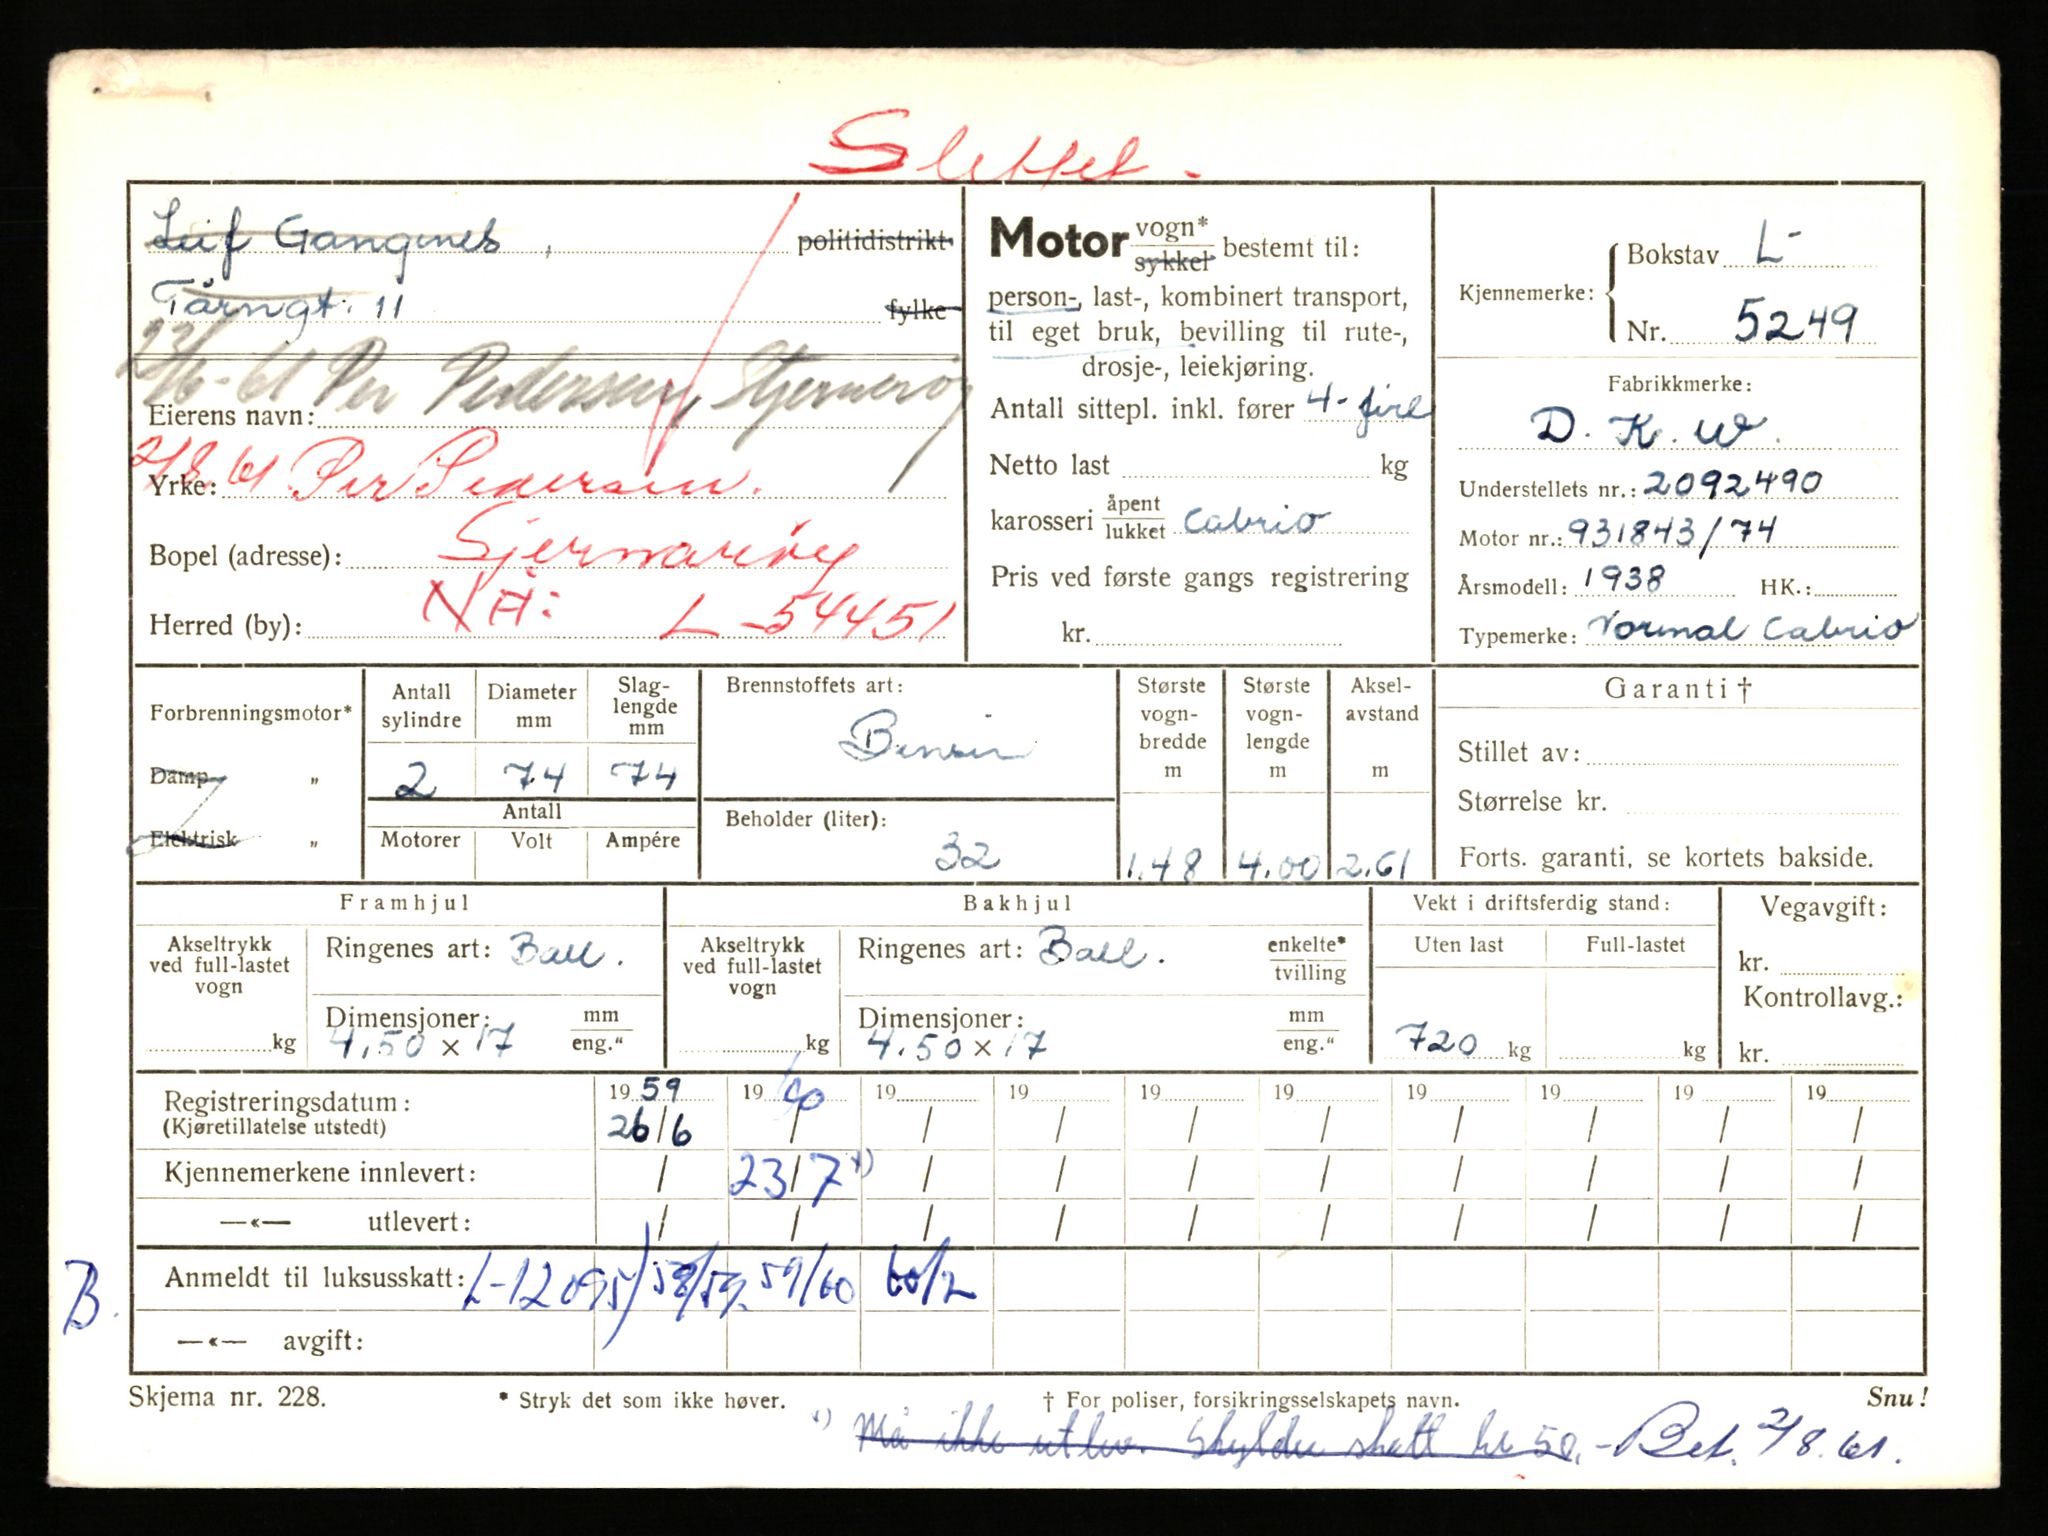 Slettet -
Leif Gangnes, politidistrikt
Tårngt. 11 fylke
23/6-61 Per Pedersen, Stjernerøy
Eierens navn:
2/8.61 Per Pedersen.
Yrke:
Bopel (adresse): Sjernarøy
Herred (by): Nå: L-54451
Motor vogn* / sykkel bestemt til:
person-, last-, kombinert transport,
til eget bruk, bevilling til rute-,
drosje-, leiekjøring.
Antall sittepl. inkl. fører 4- fire
Netto last kg
karosseri åpent / lukket Cabrio
Pris ved første gangs registrering
kr.
Kjennemerke: Bokstav L-
Nr. 5249
Fabrikkmerke:
D. K. W.
Understellets nr.: 2092490
Motor nr.: 931843/74
Årsmodell: 1938 HK.:
Typemerke: Normal Cabrio
Forbrenningsmotor*
Damp „
Elektrisk „
Antall sylindre Diameter mm Slaglengde mm
2 74 74
Antall
Motorer Volt Ampére
Brennstoffets art:
Bensin
Beholder (liter):
32
Største vogn-bredde m 1.48
Største vogn-lengde m 4.00
Aksel-avstand m 2.61
Garanti †
Stillet av:
Størrelse kr.
Forts. garanti, se kortets bakside.
Framhjul
Akseltrykk ved full-lastet vogn kg
Ringenes art: Ball.
Dimensjoner: mm / eng."
4.50 x 17
Bakhjul
Akseltrykk ved full-lastet vogn kg
Ringenes art: Ball. enkelte* / tvilling
Dimensjoner: mm / eng."
4.50 x 17
Vekt i driftsferdig stand:
Uten last Full-lastet
720 kg kg
Vegavgift:
kr.
Kontrollavg.:
kr.
19 59 19 60 19 19 19 19 19 19 19 19
Registreringsdatum: 26/6 / / / / / / / / /
(Kjøretillatelse utstedt)
Kjennemerkene innlevert: / 23/7 *) / / / / / / / /
—«— utlevert: / / / / / / / / / /
B. Anmeldt til luksusskatt: L-12095) 58/59. 59/60 60/2
—«— avgift:
Skjema nr. 228. * Stryk det som ikke høver. † For poliser, forsikringsselskapets navn. Snu!
*) Må ikke utlev. Skylder skatt kr 50.- Bet. 2/8.61.